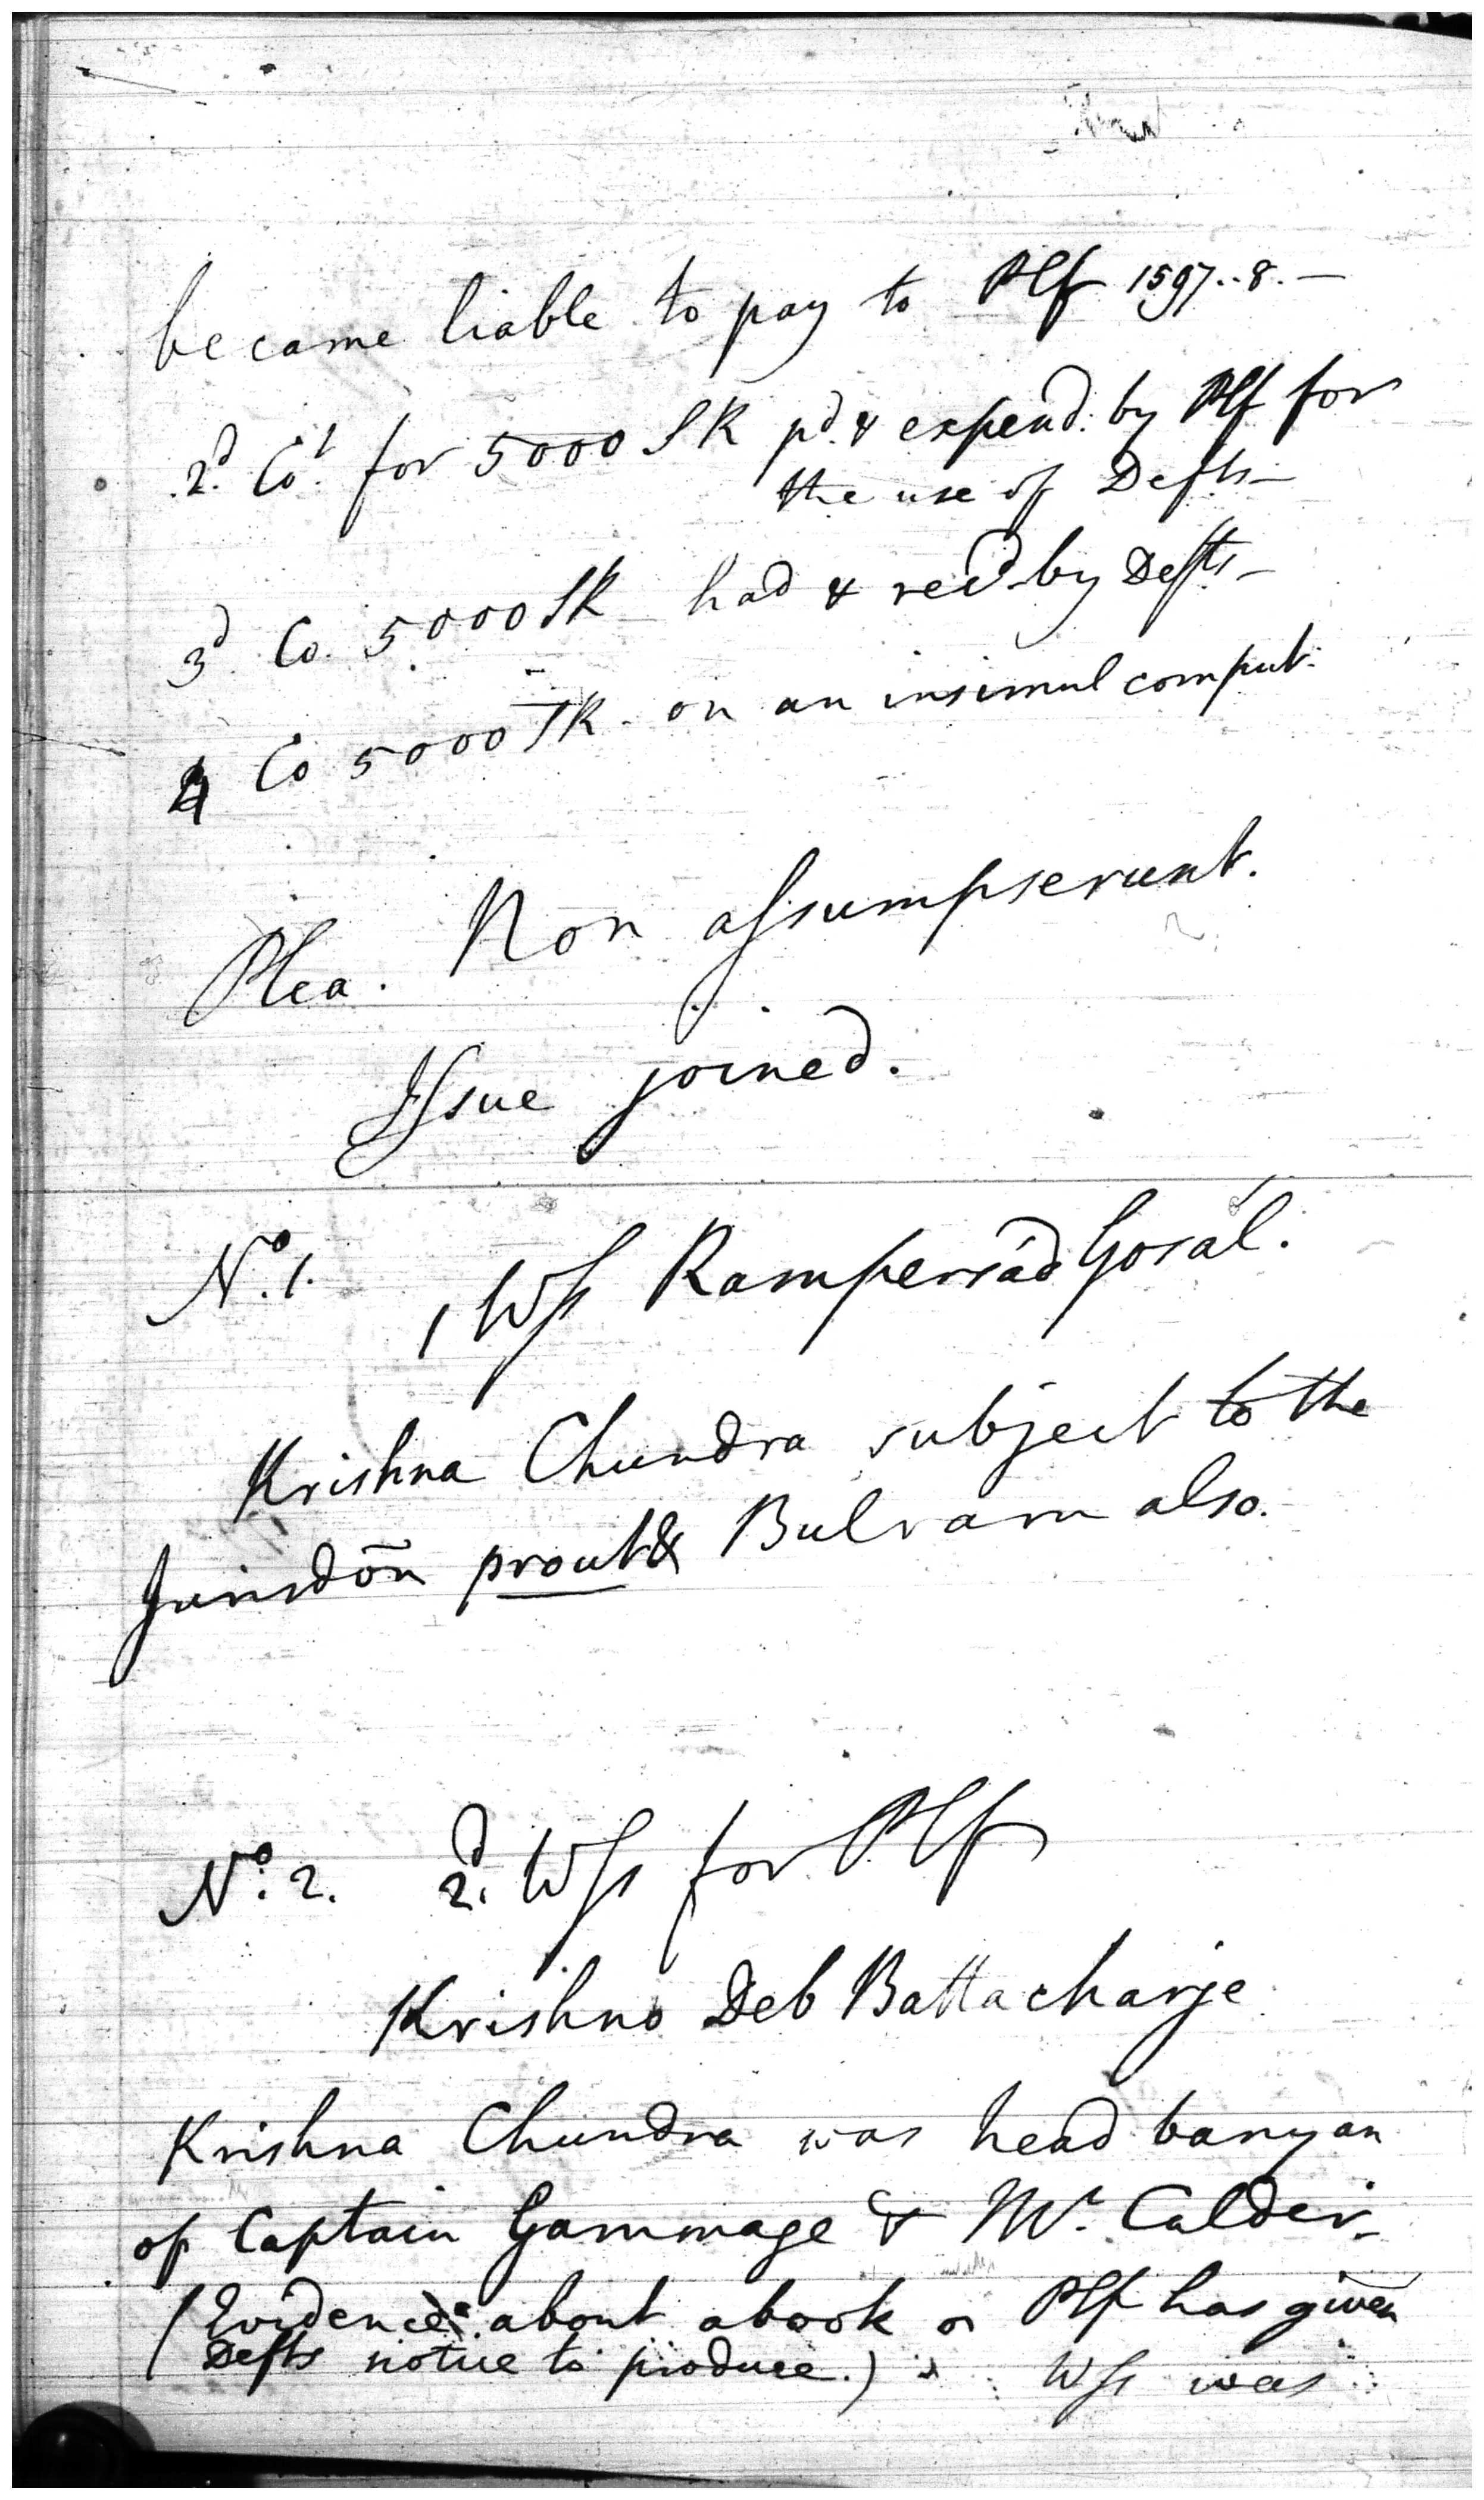 became liable to pay to Plf 1597..8.—
2.d Co.t for 5000 SR pd. & expend. by Plf for
the use of Defts—
3d Co. 5000 SR had & recd. by Defts—
4 Co 5000 SR on an insimul comput.
Plea. Non assumpserunt.
Issue joined.
No. 1. 1 Wss Rampersád Gosal.
Krishna Chundra subject to the
Jurisdōn prout & Bulram also.
No. 2. 2.d Wss for Plf
Krishno Deb Battacharje
Krishna Chundra was head banyan
of Captain Gammage & Mr. Calder—
(Evidence about a book Plf has given
Defts notice to produce.) Wss was